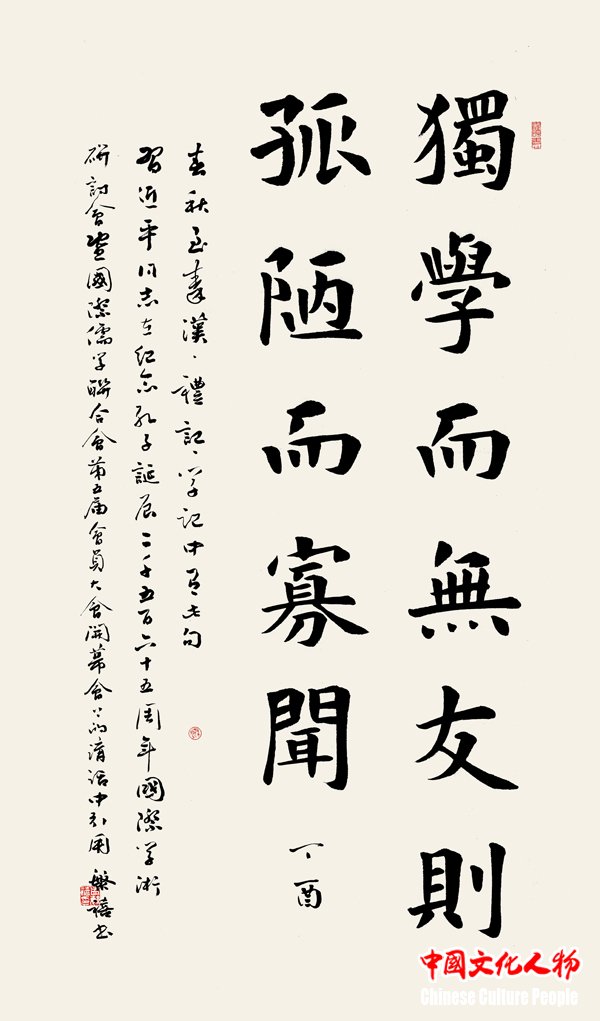 獨學而無友則
孤陋而寡聞
丁酉
春秋至秦漢、禮記、學记中有七句
習近平同志在纪念孔子誕辰二千五百六十五周年國際学術
研討會暨國際儒学聯合會第五届會員大會開幕會上的講话中引用 盤禧书
中國文化人物
Chinese Culture People